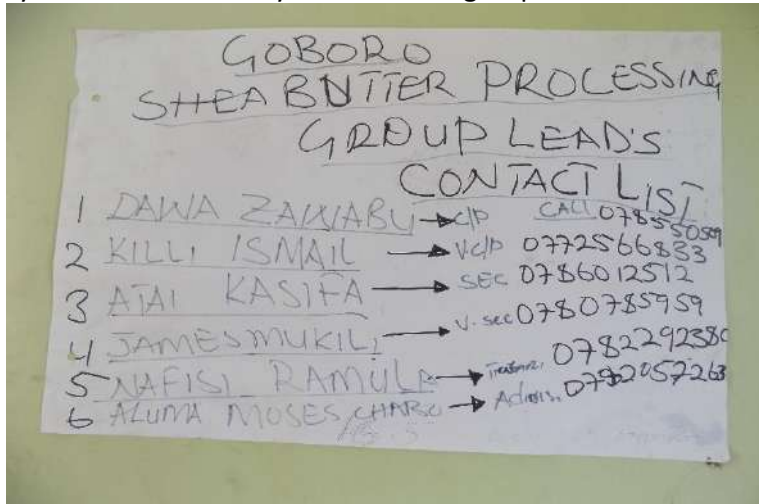 GOBORO
SHEA BUTTER PROCESSING
GROUP LEAD'S
CONTACT LIST
1 DAWA ZAWABU → C/P CALL
2 KILLI ISMAIL → V C/P 0772566833
3 ATAI KASIFA → SEC 0786012512
4 JAMES MUKILI → V. sec 0780785959
5 NAFISI RAMULA → 0782292380
6 ALUMA MOSES → Admin.